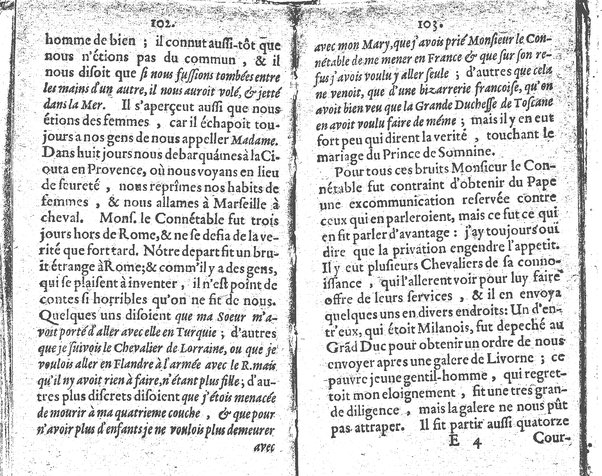 102.
homme de bien ; il connut aussi-tôt que
nous n'étions pas du commun , & il
nous disoit que si nous fussions tombées entre
les mains d'un autre, il nous auroit volé, & jetté
dans la Mer. Il s'aperçeut aussi que nous
étions des femmes , car il échapoit tou-
jours a nos gens de nous appeller Madame.
Dans huit jours nous debarquâmes à la Ci-
outa en Provence, où nous voyans en lieu
de seureté , nous reprîmes nos habits de
femmes , & nous allames à Marseille à
cheval. Mons. le Connétable fut trois
jours hors de Rome, & ne se defia de la ve-
rité que fort tard. Nôtre depart fit un bru-
it étrange à Rome; & comm'il y a des gens,
qui se plaisent à inventer , il n'est point de
contes si horribles qu'on ne fit de nous.
Quelques uns disoient que ma Soeur m'a-
voit porté d'aller avec elle en Turquie ; d'autres
que je suivois le Chevalier de Lorraine, ou que je
voulois aller en Flandre à l'armée avec le R. mais
qu'il ny avoit rien à faire, n'étant plus fille; d'au-
tres plus discrets disoient que j'étois menacée
de mourir à ma quatrieme couche , & que pour
n'avoir plus d'enfants je ne voulois plus demeurer
avec
103.
avec mon Mary, que j'avois prié Monsieur le Con-
nétable de me mener en France & que sur son re-
fus j'avois voulu y aller seule ; d'autres que cela
ne venoit, que d'une bizarrerie francoise, qu'on
avoit bien veu que la Grande Duchesse de Toscane
en avoit voulu faire de méme ; mais il y en eut
fort peu qui dirent la verité , touchant le
mariage du Prince de Somnine.
Pour tous ces bruits Monsieur le Con-
nétable fut contraint d'obtenir du Pape
une excommunication reservée contre
ceux qui en parleroient, mais ce fut ce qui
en fit parler d'avantage : j'ay toujours oui
dire que la privation engendre l'appetit.
Il y eut plusieurs Chevaliers de sa conno-
issance , qui l'allerent voir pour luy faire
offre de leurs services , & il en envoya
quelques uns en divers endroits: Un d'en-
tr'eux, qui étoit Milanois, fut depeché au
Grãd Duc pour obtenir un ordre de nous
envoyer apres une galere de Livorne ; ce
pauvre jeune gentil-homme , qui regret-
toit mon eloignement , fit une tres gran-
de diligence , mais la galere ne nous pût
pas attraper. Il fit partir aussi quatorze
E 4 Cour-